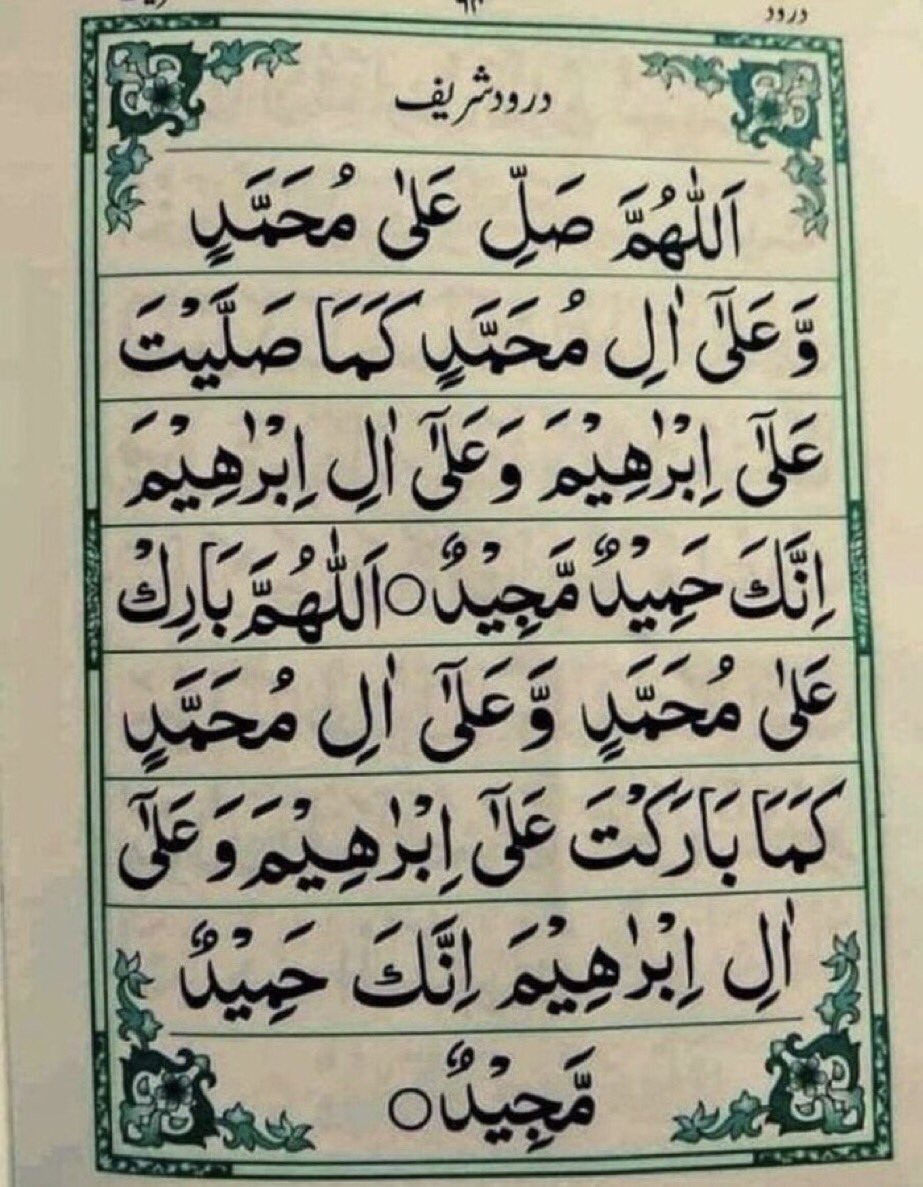 درود
۶۲
درود شریف
اَللّٰهُمَّ صَلِّ عَلٰى مُحَمَّدٍ
وَّ عَلٰٓى اٰلِ مُحَمَّدٍ كَمَا صَلَّيْتَ
عَلٰٓى اِبْرٰهِيْمَ وَ عَلٰٓى اٰلِ اِبْرٰهِيْمَ
اِنَّكَ حَمِيْدٌ مَّجِيْدٌ○ اَللّٰهُمَّ بَارِكْ
عَلٰى مُحَمَّدٍ وَّ عَلٰٓى اٰلِ مُحَمَّدٍ
كَمَا بَارَكْتَ عَلٰٓى اِبْرٰهِيْمَ وَ عَلٰٓى
اٰلِ اِبْرٰهِيْمَ اِنَّكَ حَمِيْدٌ
مَّجِيْدٌ○